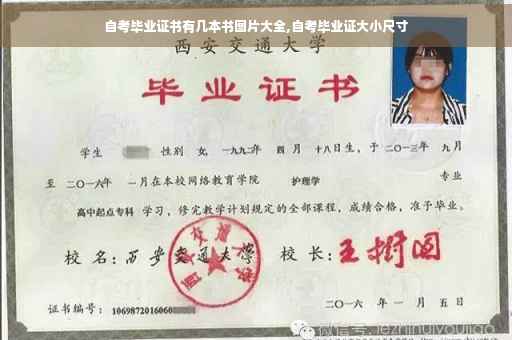 自考毕业证书有几本书图片大全,自考毕业证大小尺寸
西安交通大学
毕业证书
学生 性别 女, 一九九二年 四 月 十八日生, 于 二〇一三年 九月
至 二〇一六年 一月在本校网络教育学院 护理学 专业
高中起点专科 学习, 修完教学计划规定的全部课程, 成绩合格, 准予毕业。
校 名: 西安交通大学 校 长: 王树国
西安交通大学
证书编号: 1069872016060
二〇一六 年 一 月 五 日
微信号: jiezhihuiyoujiao